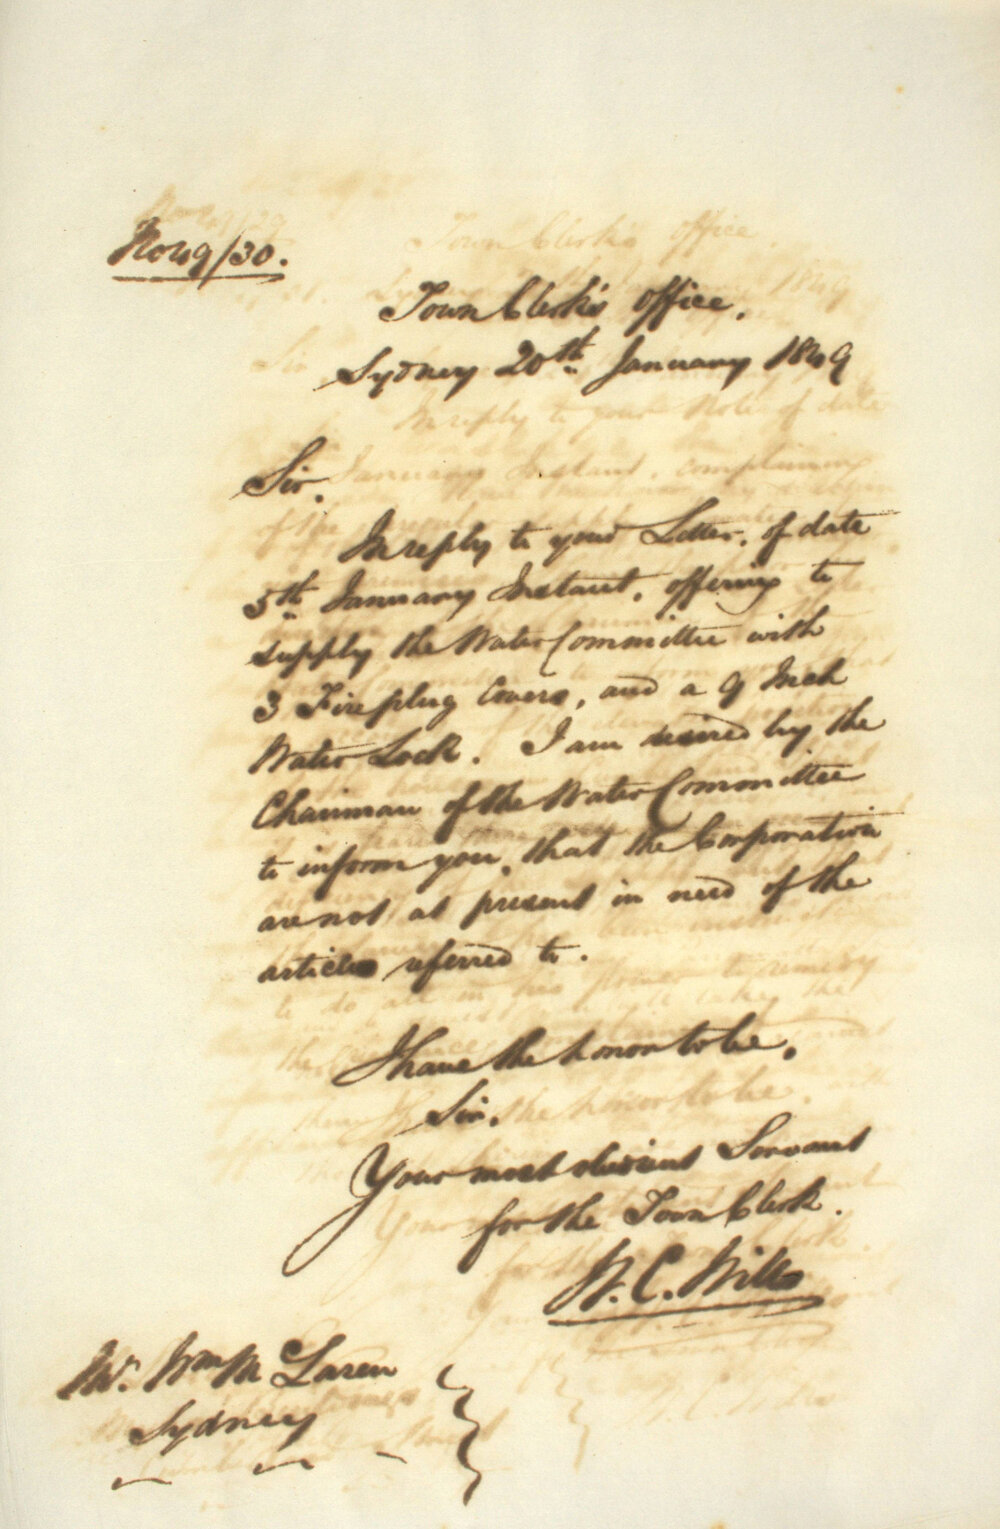 No 49/30.
Town Clerk's Office,
Sydney 20th January 1849
Sir,
In reply to your Letter, of date
5th January Instant, offering to
supply the Water Committee with
3 Fireplug Covers, and a 9 Inch
Water Lock. I am desired by the
Chairman of the Water Committee
to inform you, that the Corporation
are not at present in need of the
articles referred to.
I have the honor to be,
Sir,
Your most obedient Servant
for the Town Clerk.
W. C. Wills
Mr. Wm McLaren
Sydney